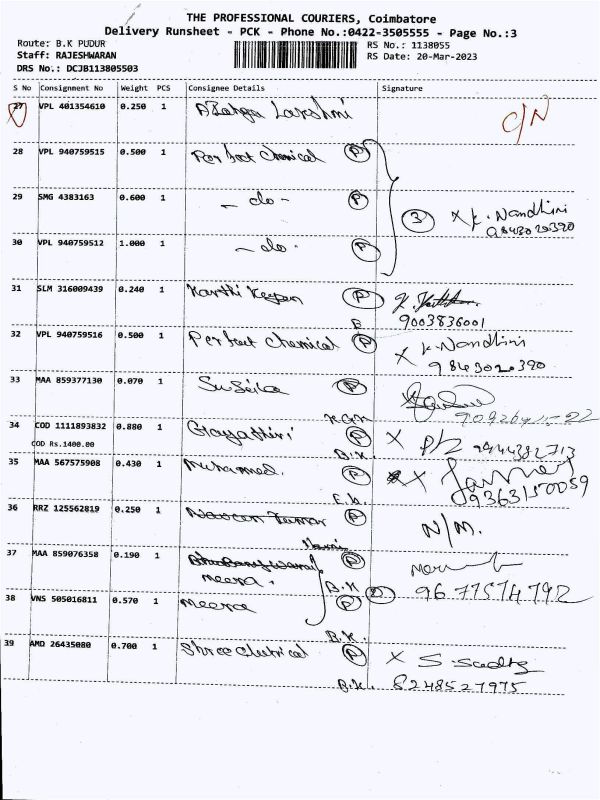 THE PROFESSIONAL COURIERS, Coimbatore
Delivery Runsheet - PCK - Phone No.:0422-3505555 - Page No.:3
Route: B.K PUDUR
RS No.: 1138055
Staff: RAJESHWARAN
RS Date: 20-Mar-2023
DRS No.: DCJB113805503
S No Consignment No Weight PCS Consignee Details Signature
27 VPL 401354610 0.250 1 C/N
28 VPL 940759515 0.500 1 Perfect Chemical P
29 SMG 4383163 0.600 1 - do - P 3 X K. Nandhini
9843020390
30 VPL 940759512 1.000 1 - do - P
31 SLM 316009439 0.240 1 Karthi P
9003836001
32 VPL 940759516 0.500 1 Perfect Chemical P X K. Nandhini
9843020390
33 MAA 859377130 0.070 1 P
34 COD 1111893832 0.880 1 Gayathiri P X 9444382713
COD Rs.1400.00 B.K
35 MAA 567575908 0.430 1 Muhamed. P X
9363150059
36 RRZ 125562819 0.250 1 Naveen Kumar P N/M.
37 MAA 859076358 0.190 1 P
meera. B.K 2 9677574792
38 VNS 505016811 0.570 1 meera P
B.K.
39 AMD 26435080 0.700 1 Shree P X S.
B.K. 8248527975